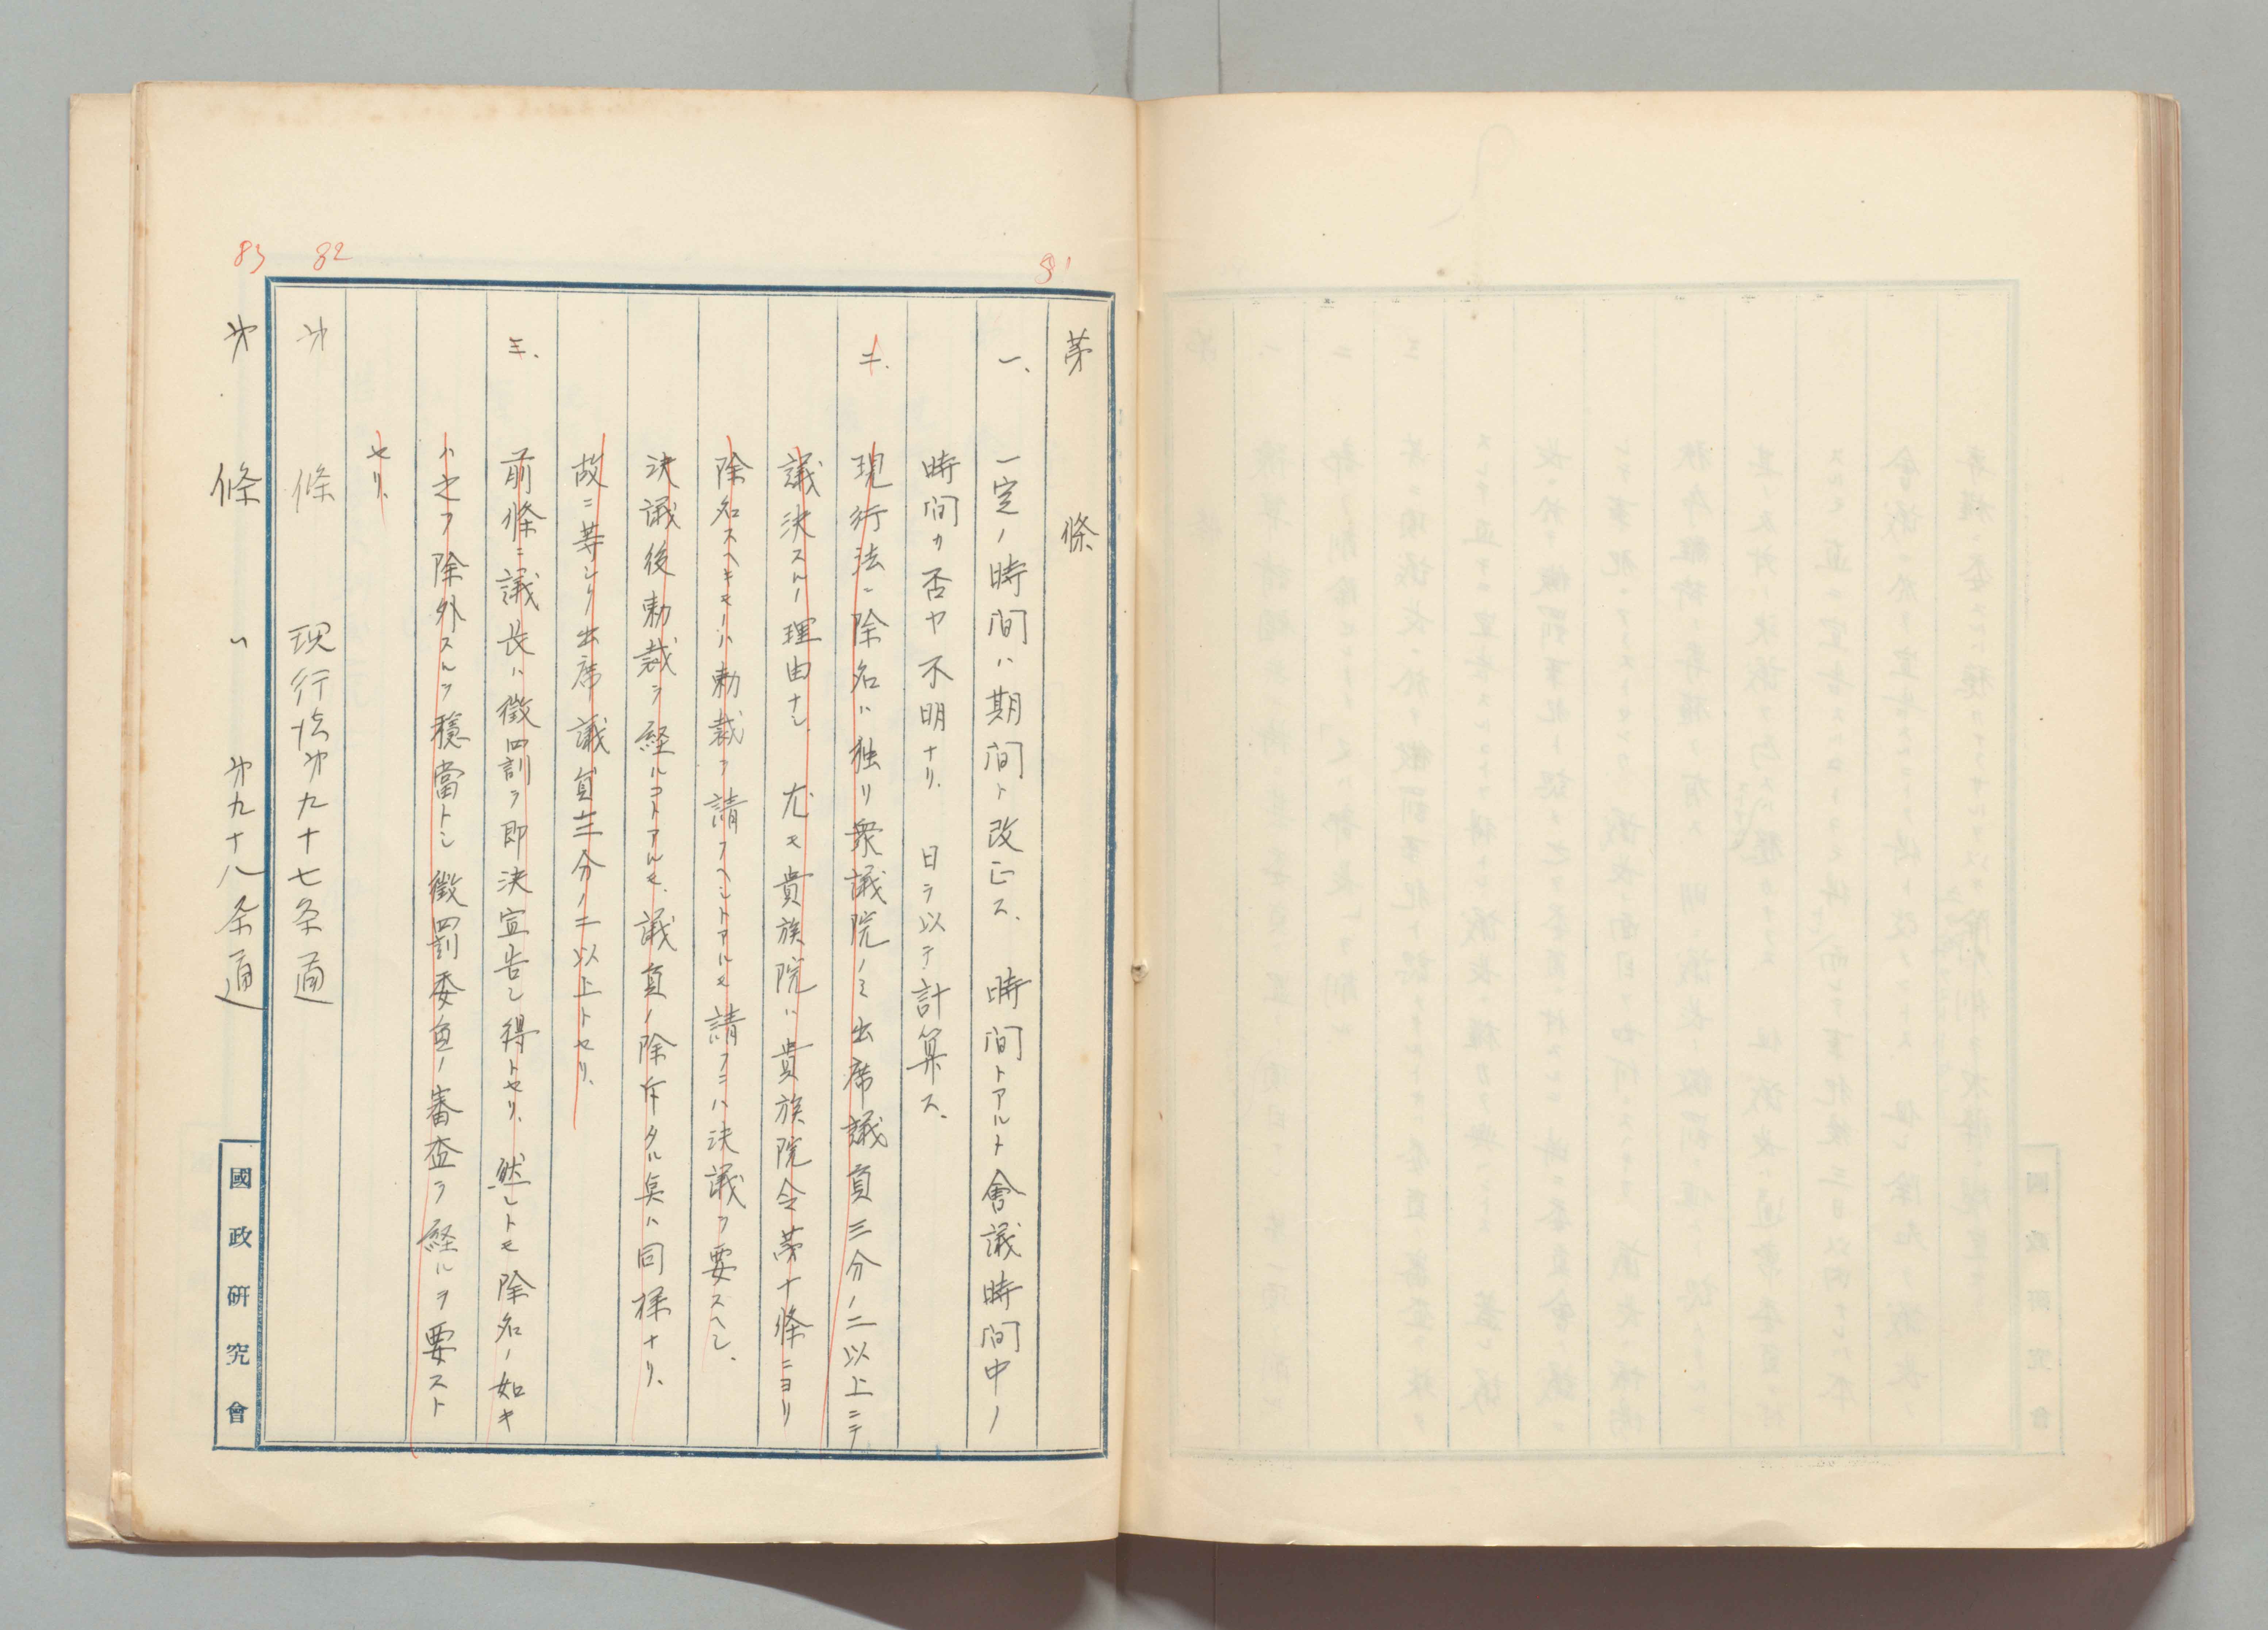 81
第　條
一、一定ノ時間ハ期間ト改正ス、時間トアルト會議時間中ノ
時間カ否ヤ不明ナリ、日ヲ以テ計算ス、
二、現行法ニ除名ハ独リ衆議院ノミ出席議員三分ノ二以上ニテ
議決スルノ理由ナシ、尤モ貴族院ハ貴族院令第十條ニヨリ
除名スヘキモノハ勅裁ヲ請フヘシトアルモ請フニハ決議ヲ要スヘシ、
決議後勅裁ヲ経ルコトアルモ、議員ノ除斥タル矣ハ同様ナリ、
故ニ等シク出席議員三分ノ二以上トセリ、
三、前條ニ議長ハ徴罰ヲ即決宣告シ得トセリ、然レトモ除名ノ如キ
ハ之ヲ除外スルヲ穏當トシ徴罰委員ノ審査ヲ経ルヲ要スト
セリ、
82
㐧　條　現行法㐧九十七条通
83
㐧　條　〃　㐧九十八条通
國政研究會